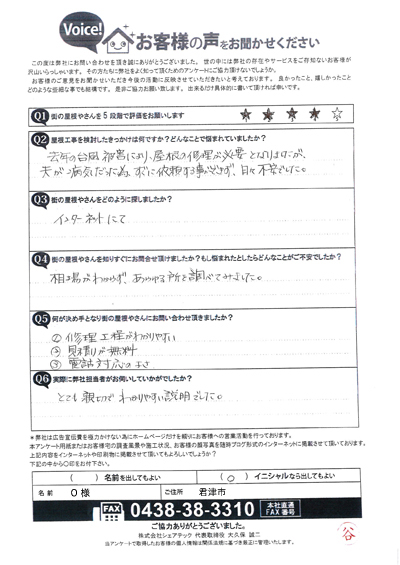 Voice! お客様の声をお聞かせください
この度は弊社にお問い合わせを頂き誠にありがとうございました。世の中には弊社の存在やサービスをご存知ないお客様が
沢山いらっしゃいます。その方たちに弊社をよく知って頂くためのアンケートにご協力頂けないでしょうか。
お客様のご意見をお聞かせいただき今後の活動に反映させていただきたいと考えております。良かったこと、嬉しかったこと
どのような些細な事でも結構です。是非ご協力お願い致します。出来るだけ具体的に書いて頂ければ幸いです。
Q1 街の屋根やさんを5段階で評価をお願いします ★ ★ ★ ★ ☆
Q2 屋根工事を検討したきっかけは何ですか?どんなことで悩まれていましたか?
去年の台風被害により、屋根の修理が必要となりましたが、
夫が病気だった為、すぐに依頼する事ができず、日々不安でした。
Q3 街の屋根やさんをどのように探しましたか?
インターネットにて
Q4 街の屋根やさんを知りすぐにお問合せ頂けましたか?もし悩まれたとしたらどんなことがご不安でしたか?
相場がわからず、あらゆる所を調べてみました。
Q5 何が決め手となり街の屋根やさんにお問い合わせ頂きましたか?
①修理工程がわかりやすい
②見積りが無料
③電話対応の良さ
Q6 実際に弊社担当者がお伺いしていかがでしたか?
とても親切でわかりやすい説明でした。
*弊社は広告宣伝費を極力かけない為にホームページだけを頼りにお客様への営業活動を行っております。
本アンケート用紙またはお客様宅の調査風景や施工状況、お客様の顔写真を随時ブログ形式のインターネットに掲載させて頂いております。
上記内容をインターネットや印刷物に掲載させて頂いてもよろしいでしょうか?
下記の中から〇印をお付下さい。
( ) 名前を出してもよい ( ○ ) イニシャルなら出してもよい
名前 O様 ご住所 君津市
FAX 0438-38-3310 本社直通 FAX番号
ご協力ありがとうございました。
株式会社シェアテック 代表取締役 大久保 誠二
当アンケートで取得したお客様の個人情報は関係法規に基づき厳正に管理いたします。
谷